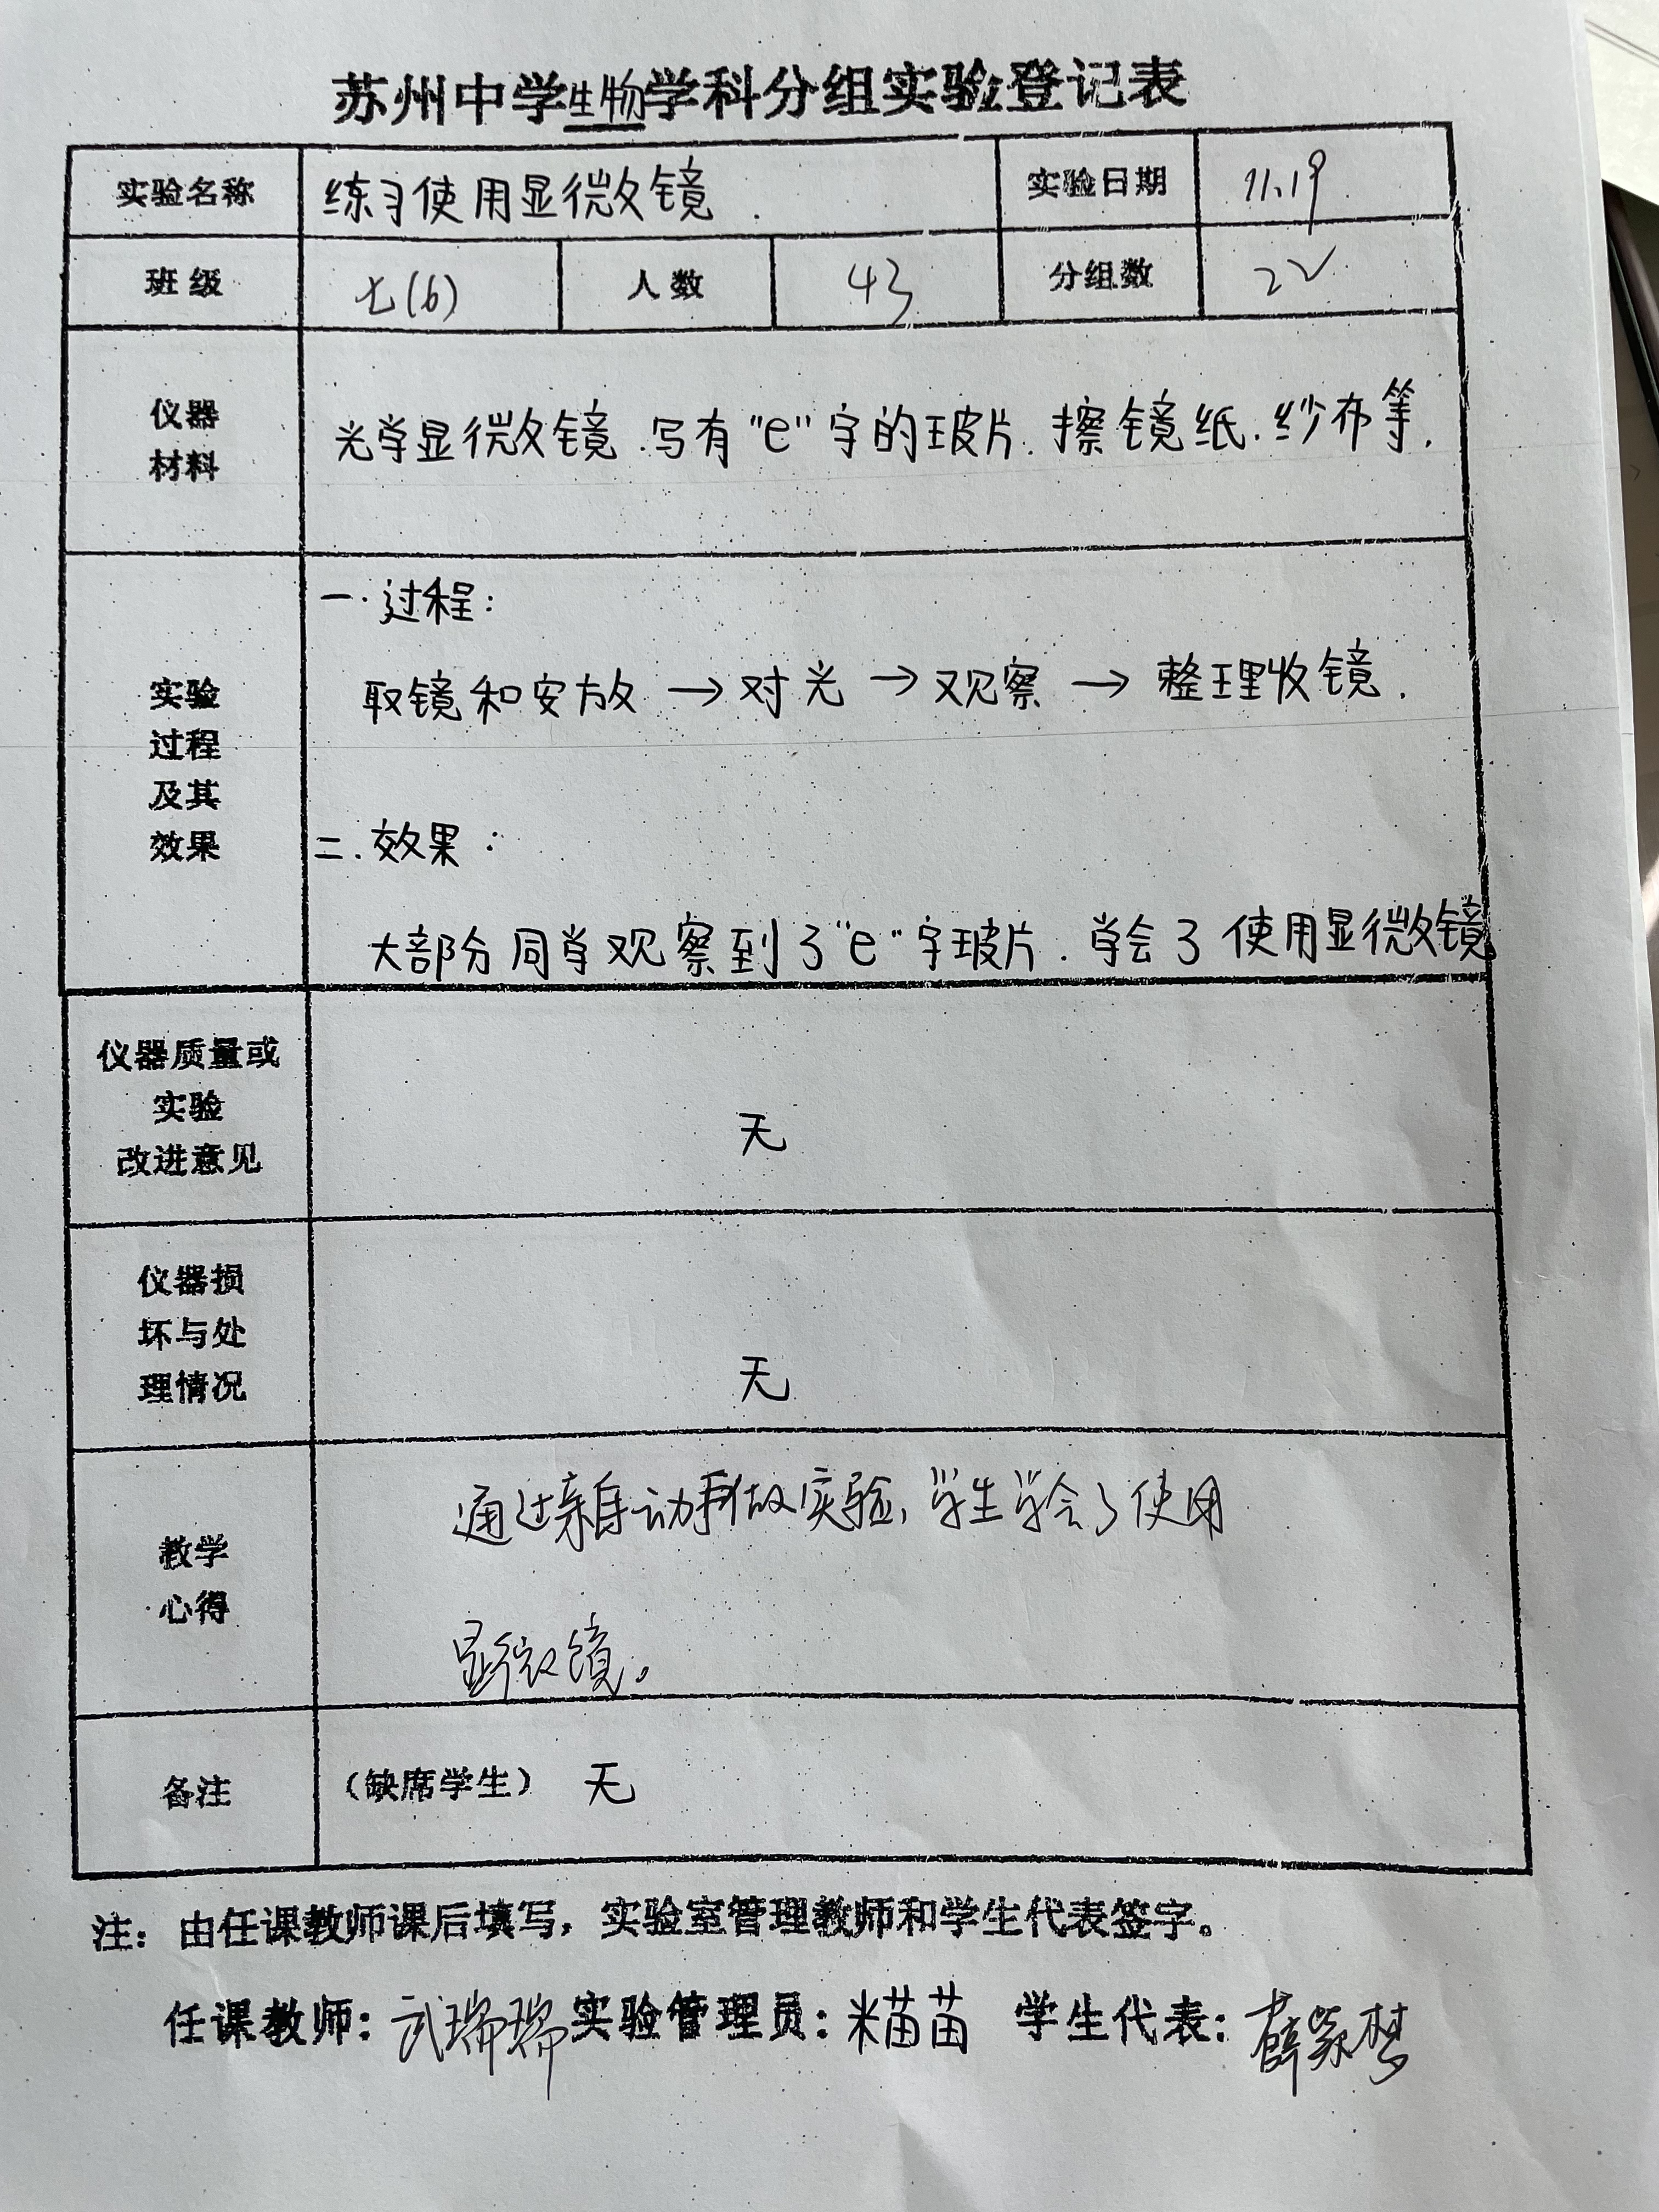 苏州中学生物学科分组实验登记表
实验名称 练习使用显微镜. 实验日期 11.19
班级 七(6) 人数 43 分组数 22
仪器
材料
光学显微镜.写有"e"字的玻片.擦镜纸.纱布等.
实验
过程
及其
效果
一.过程:
取镜和安放→对光→观察→整理收镜.
二.效果:
大部分同学观察到了"e"字玻片.学会了使用显微镜
仪器质量或
实验
改进意见
无
仪器损
坏与处
理情况
无
教学
心得
通过亲自动手做实验,学生学会了使用
显微镜。
备注 (缺席学生) 无
注:由任课教师课后填写,实验室管理教师和学生代表签字。
任课教师:武瑞瑞 实验管理员:米苗苗 学生代表:薛